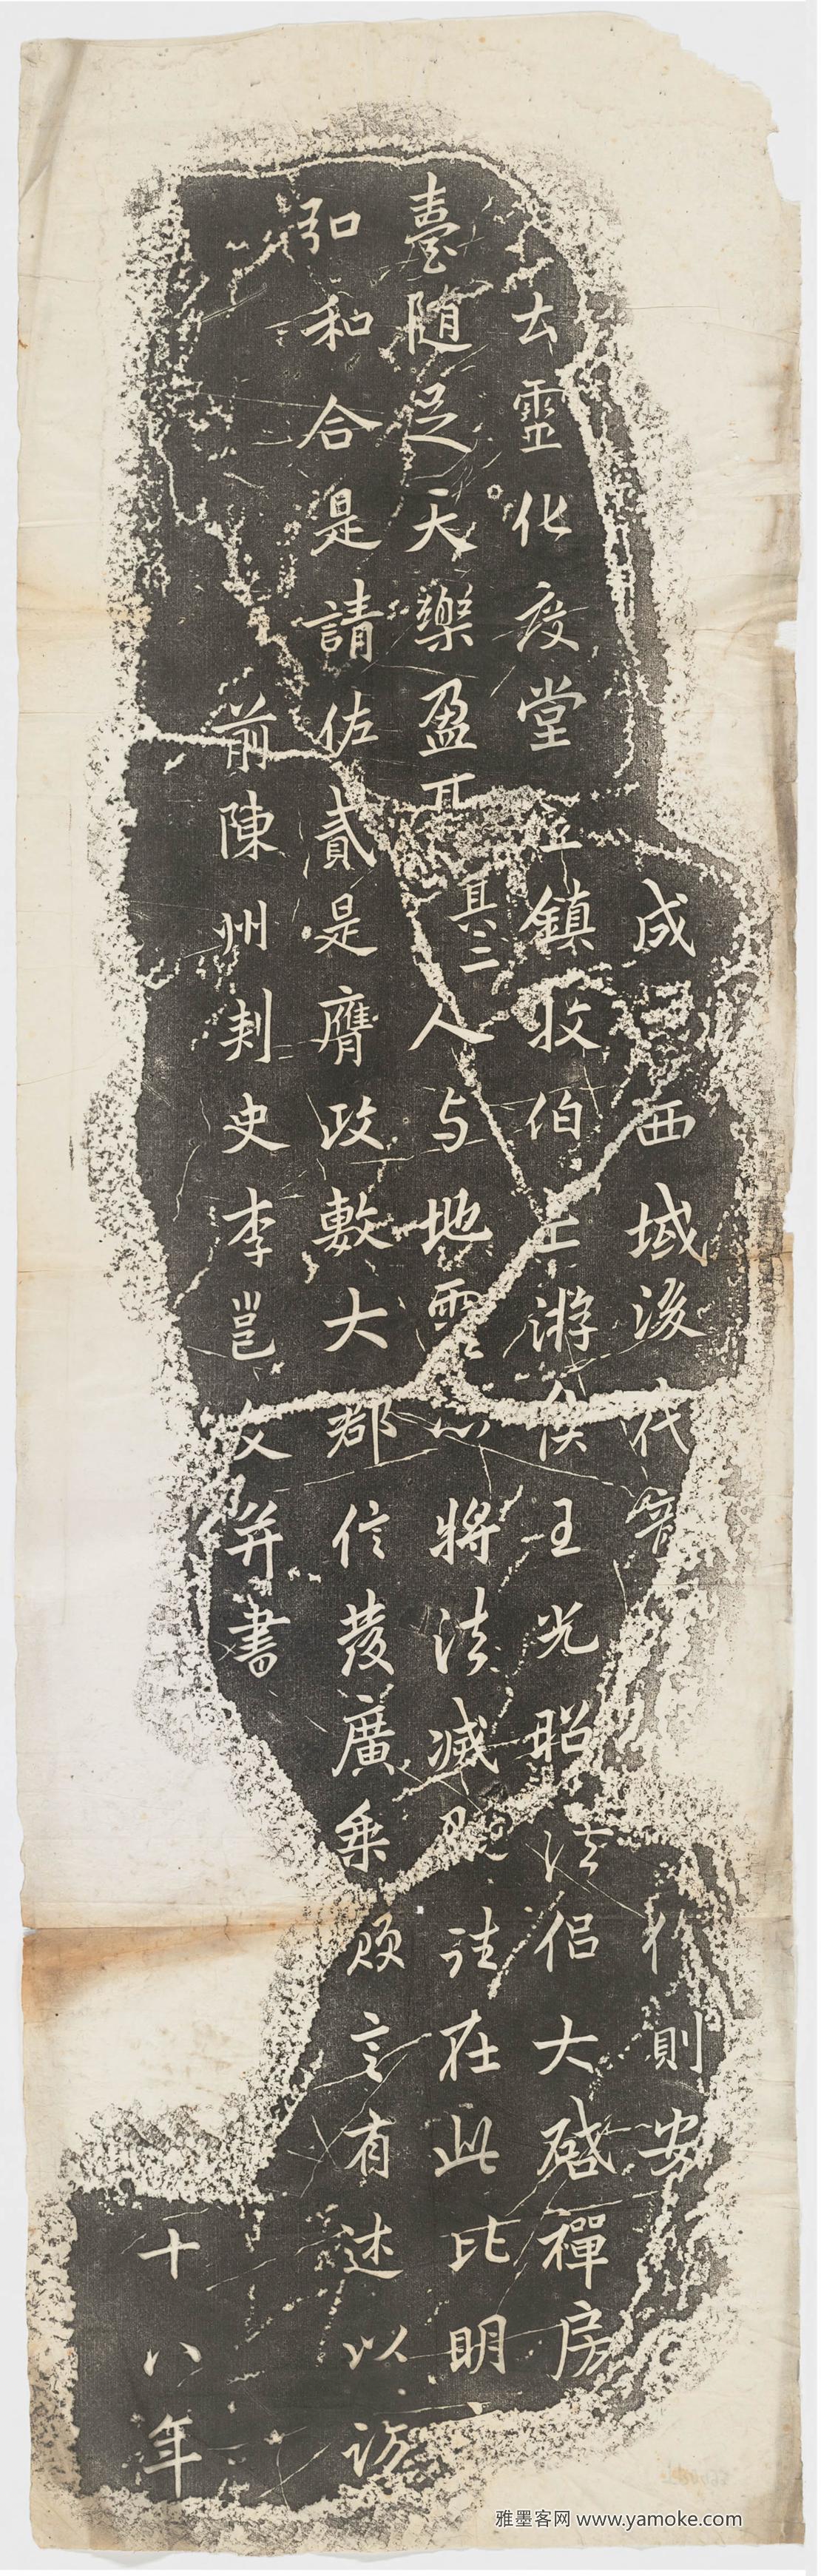 成西域後代則安
去靈化度堂立鎮牧伯上游侯王光昭法侶大啓禪房
臺隨足天樂盈耳其二人与地靈心將法滅在此比明
弘和合是請佐貳是膺政敷大都信發廣乘願言有述以訪
前陳州刺史李邕文并書
十八年
雅墨客网 www.yamoke.com